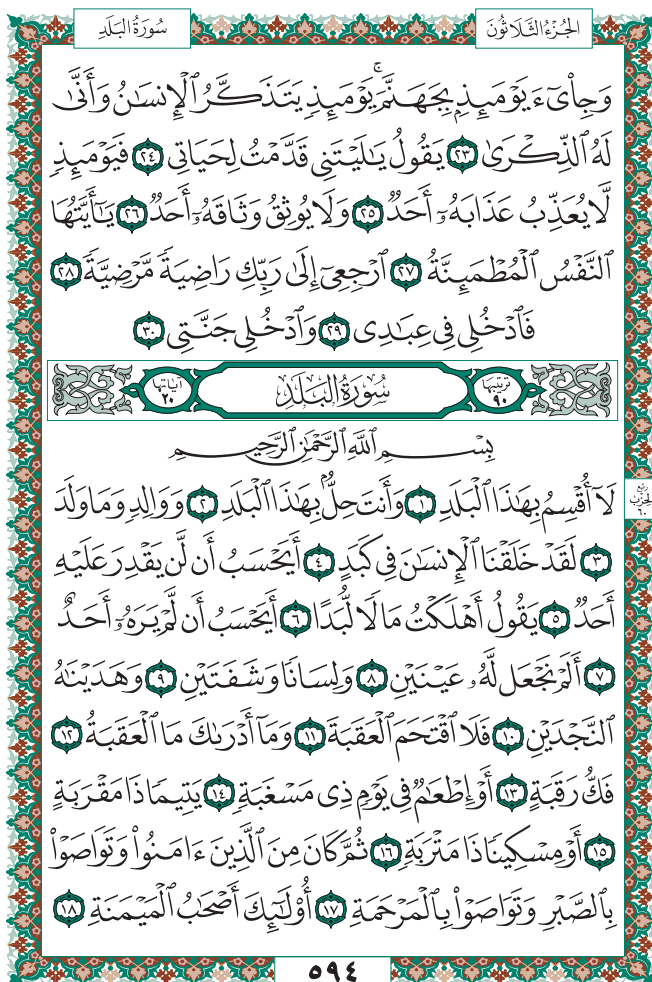 الجُزْءُ الثَّلَاثُونَ
سُورَةُ البَلَدِ
وَجِاْىٓءَ يَوْمَئِذِۭ بِجَهَنَّمَۚ يَوْمَئِذٖ يَتَذَكَّرُ ٱلْإِنسَٰنُ وَأَنَّىٰ
لَهُ ٱلذِّكْرَىٰ ٢٣ يَقُولُ يَٰلَيْتَنِى قَدَّمْتُ لِحَيَاتِى ٢٤ فَيَوْمَئِذٖ
لَّا يُعَذِّبُ عَذَابَهُۥٓ أَحَدٞ ٢٥ وَلَا يُوثِقُ وَثَاقَهُۥٓ أَحَدٞ ٢٦ يَٰٓأَيَّتُهَا
ٱلنَّفْسُ ٱلْمُطْمَئِنَّةُ ٢٧ ٱرْجِعِىٓ إِلَىٰ رَبِّكِ رَاضِيَةٗ مَّرْضِيَّةٗ ٢٨
فَٱدْخُلِى فِى عِبَٰدِى ٢٩ وَٱدْخُلِى جَنَّتِى ٣٠
ترتيبها ٩٠ سُورَةُ البَلَدِ آياتها ٢٠
بِسْمِ ٱللَّهِ ٱلرَّحْمَٰنِ ٱلرَّحِيمِ
لَآ أُقْسِمُ بِهَٰذَا ٱلْبَلَدِ ١ وَأَنتَ حِلُّۢ بِهَٰذَا ٱلْبَلَدِ ٢ وَوَالِدٖ وَمَا وَلَدَ
٣ لَقَدْ خَلَقْنَا ٱلْإِنسَٰنَ فِى كَبَدٍ ٤ أَيَحْسَبُ أَن لَّن يَقْدِرَ عَلَيْهِ
أَحَدٞ ٥ يَقُولُ أَهْلَكْتُ مَالٗا لُّبَدًا ٦ أَيَحْسَبُ أَن لَّمْ يَرَهُۥٓ أَحَدٌ
٧ أَلَمْ نَجْعَل لَّهُۥ عَيْنَيْنِ ٨ وَلِسَانٗا وَشَفَتَيْنِ ٩ وَهَدَيْنَٰهُ
ٱلنَّجْدَيْنِ ١٠ فَلَا ٱقْتَحَمَ ٱلْعَقَبَةَ ١١ وَمَآ أَدْرَىٰكَ مَا ٱلْعَقَبَةُ ١٢
فَكُّ رَقَبَةٍ ١٣ أَوْ إِطْعَٰمٞ فِى يَوْمٖ ذِى مَسْغَبَةٖ ١٤ يَتِيمٗا ذَا مَقْرَبَةٍ
١٥ أَوْ مِسْكِينٗا ذَا مَتْرَبَةٖ ١٦ ثُمَّ كَانَ مِنَ ٱلَّذِينَ ءَامَنُوا۟ وَتَوَاصَوْا۟
بِٱلصَّبْرِ وَتَوَاصَوْا۟ بِٱلْمَرْحَمَةِ ١٧ أُو۟لَٰٓئِكَ أَصْحَٰبُ ٱلْمَيْمَنَةِ ١٨
ربع
الحزب
٦٠
٥٩٤